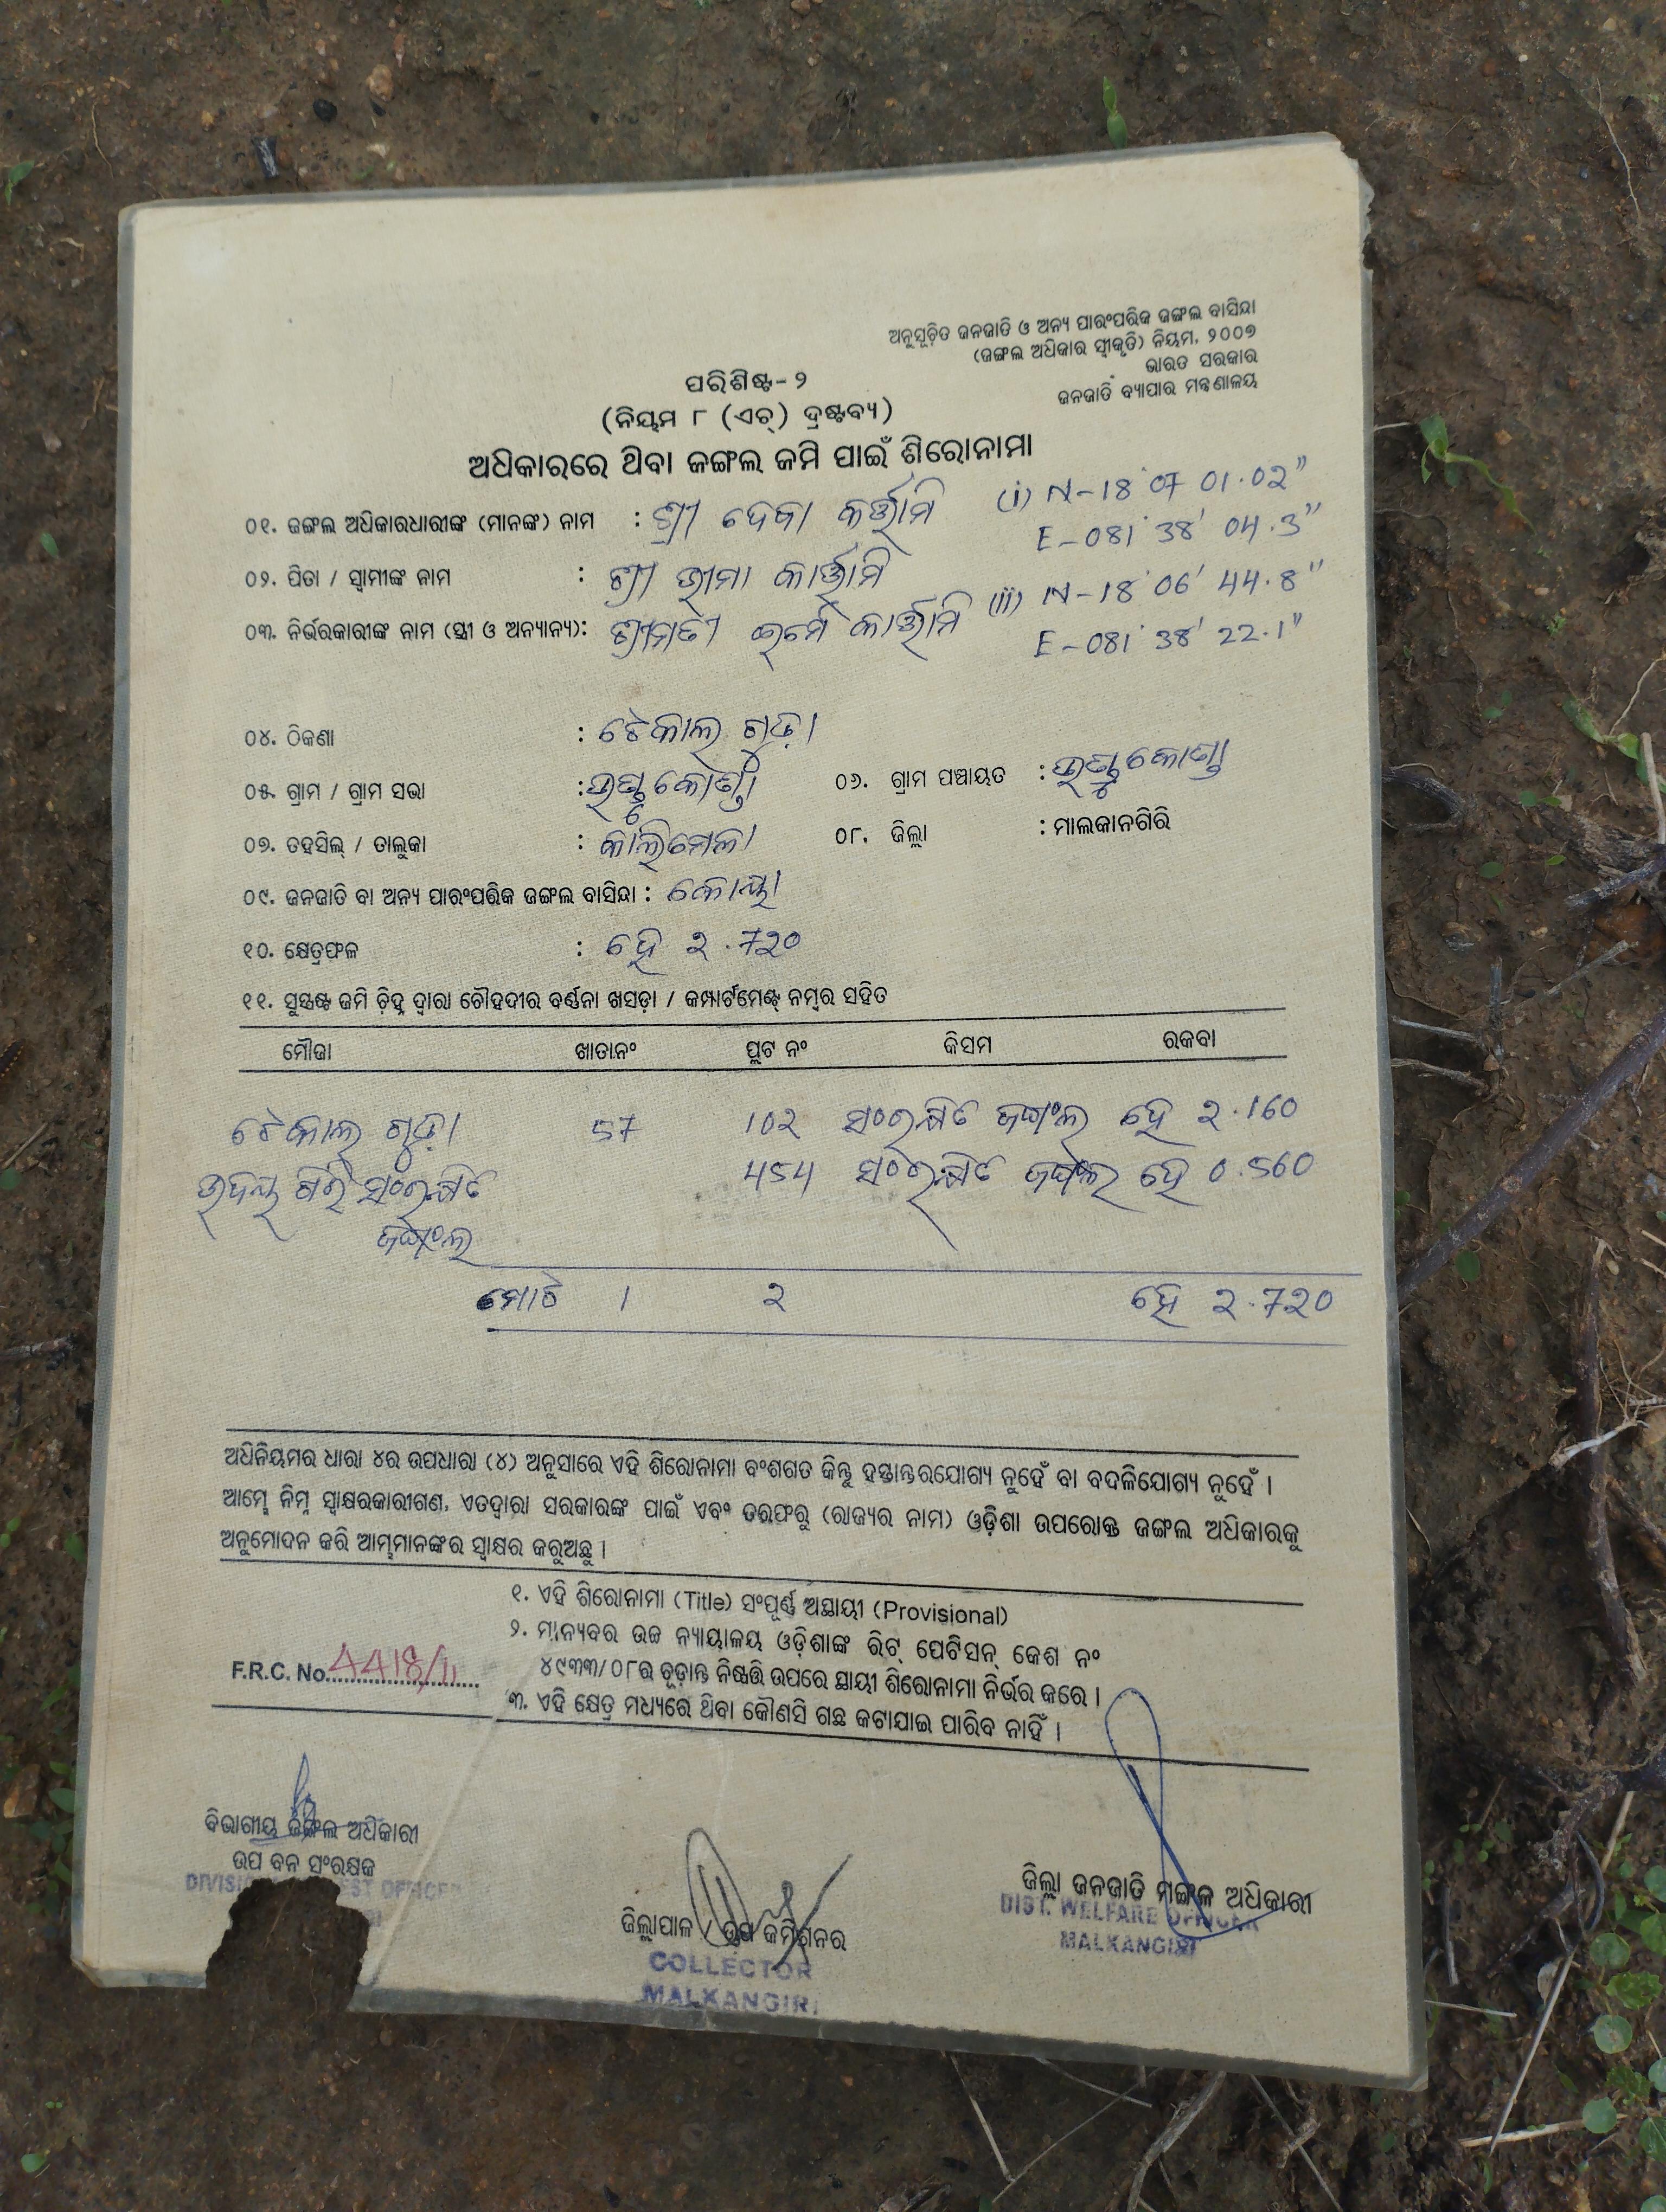 ଅନୁସୂଚିତ ଜନଜାତି ଓ ଅନ୍ୟ ପାରଂପରିକ ଜଙ୍ଗଲ ବାସିନ୍ଦା
(ଜଙ୍ଗଲ ଅଧିକାର ସ୍ୱୀକୃତି) ନିୟମ, ୨୦୦୭
ଭାରତ ସରକାର
ଜନଜାତି ବ୍ୟାପାର ମନ୍ତ୍ରଣାଳୟ
ପରିଶିଷ୍ଟ-୨
(ନିୟମ ୮ (ଏଚ୍) ଦ୍ରଷ୍ଟବ୍ୟ)
ଅଧିକାରରେ ଥିବା ଜଙ୍ଗଲ ଜମି ପାଇଁ ଶିରୋନାମା
୦୧. ଜଙ୍ଗଲ ଅଧିକାରଧାରୀଙ୍କ (ମାନଙ୍କ) ନାମ : ଶ୍ରୀ ଦେବା କର୍ତ୍ତାମି (i) N-18°07 01.02"
E-081°38' 04.3"
୦୨. ପିତା / ସ୍ୱାମୀଙ୍କ ନାମ : ଶ୍ରୀ ଭୀମା କାର୍ତ୍ତାମି
(ii) N-18°06' 44.8"
୦୩. ନିର୍ଭରକାରୀଙ୍କ ନାମ (ସ୍ତ୍ରୀ ଓ ଅନ୍ୟାନ୍ୟ): ଶ୍ରୀମତୀ କାର୍ତ୍ତାମି
E-081°38' 22.1"
୦୪. ଠିକଣା : ଟେକାଲ ଗୁଡ଼ା
୦୫. ଗ୍ରାମ / ଗ୍ରାମ ସଭା : ୦୬. ଗ୍ରାମ ପଞ୍ଚାୟତ :
୦୭. ତହସିଲ୍ / ତାଲୁକା : କାଲିମେଳା ୦୮. ଜିଲ୍ଲା : ମାଲକାନଗିରି
୦୯. ଜନଜାତି ବା ଅନ୍ୟ ପାରଂପରିକ ଜଙ୍ଗଲ ବାସିନ୍ଦା : କୋୟା
୧୦. କ୍ଷେତ୍ରଫଳ : ହେ ୨.7୨୦
୧୧. ସୁସ୍ପଷ୍ଟ ଜମି ଚିହ୍ନ ଦ୍ୱାରା ଚୌହଦୀର ବର୍ଣ୍ଣନା ଖସଡ଼ା / କମ୍ପାର୍ଟମେଣ୍ଟ୍ ନମ୍ବର ସହିତ
ମୌଜା ଖାତାନଂ ପ୍ଲଟ ନଂ କିସମ ରକବା
ଟେକାଲ ଗୁଡ଼ା 57 10୨ ସଂରକ୍ଷିତ ଜଙ୍ଗଲ ହେ ୨.160
ଉଦୟ ଗିରି ସଂରକ୍ଷିତ 454 ସଂରକ୍ଷିତ ଜଙ୍ଗଲ ହେ 0.560
ଜଙ୍ଗଲ
ମୋଟ 1 ୨ ହେ ୨.7୨୦
ଅଧିନିୟମର ଧାରା ୪ର ଉପଧାରା (୪) ଅନୁସାରେ ଏହି ଶିରୋନାମା ବଂଶଗତ କିନ୍ତୁ ହସ୍ତାନ୍ତରଯୋଗ୍ୟ ନୁହେଁ ବା ବଦଳିଯୋଗ୍ୟ ନୁହେଁ ।
ଆମ୍ଭେ ନିମ୍ନ ସ୍ୱାକ୍ଷରକାରୀଗଣ, ଏତଦ୍ୱାରା ସରକାରଙ୍କ ପାଇଁ ଏବଂ ତରଫରୁ (ରାଜ୍ୟର ନାମ) ଓଡ଼ିଶା ଉପରୋକ୍ତ ଜଙ୍ଗଲ ଅଧିକାରକୁ
ଅନୁମୋଦନ କରି ଆମ୍ଭମାନଙ୍କର ସ୍ୱାକ୍ଷର କରୁଅଛୁ ।
୧. ଏହି ଶିରୋନାମା (Title) ସଂପୂର୍ଣ୍ଣ ଅସ୍ଥାୟୀ (Provisional)
୨. ମାନ୍ୟବର ଉଚ୍ଚ ନ୍ୟାୟାଳୟ ଓଡ଼ିଶାଙ୍କ ରିଟ୍ ପେଟିସନ୍ କେଶ ନଂ
୪୯୩୩/୦୮ର ଚୂଡ଼ାନ୍ତ ନିଷ୍ପତ୍ତି ଉପରେ ସ୍ଥାୟୀ ଶିରୋନାମା ନିର୍ଭର କରେ ।
F.R.C. No. 4418/11
୩. ଏହି କ୍ଷେତ୍ର ମଧ୍ୟରେ ଥିବା କୌଣସି ଗଛ କଟାଯାଇ ପାରିବ ନାହିଁ ।
ବିଭାଗୀୟ ଜଙ୍ଗଲ ଅଧିକାରୀ
ଉପ ବନ ସଂରକ୍ଷକ
ଜିଲ୍ଲାପାଳ / ଉପ କମିଶନର
COLLECTOR
MALKANGIRI
ଜିଲ୍ଲା ଜନଜାତି ମଙ୍ଗଳ ଅଧିକାରୀ
DIST. WELFARE OFFICER
MALKANGIRI